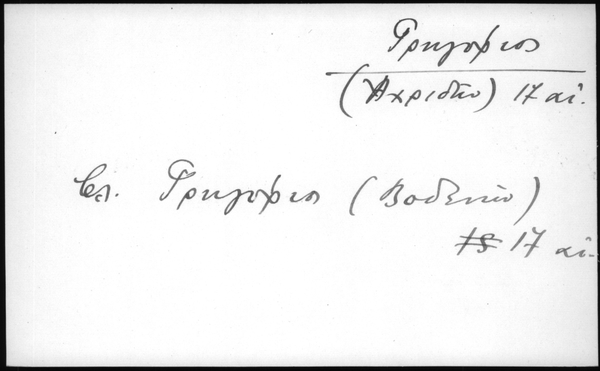 Γρηγόριος
(Ἀχριδῶν) 17 αἰ.
βλ. Γρηγόριος (Βοδενῶν)
18 17 αἰ.